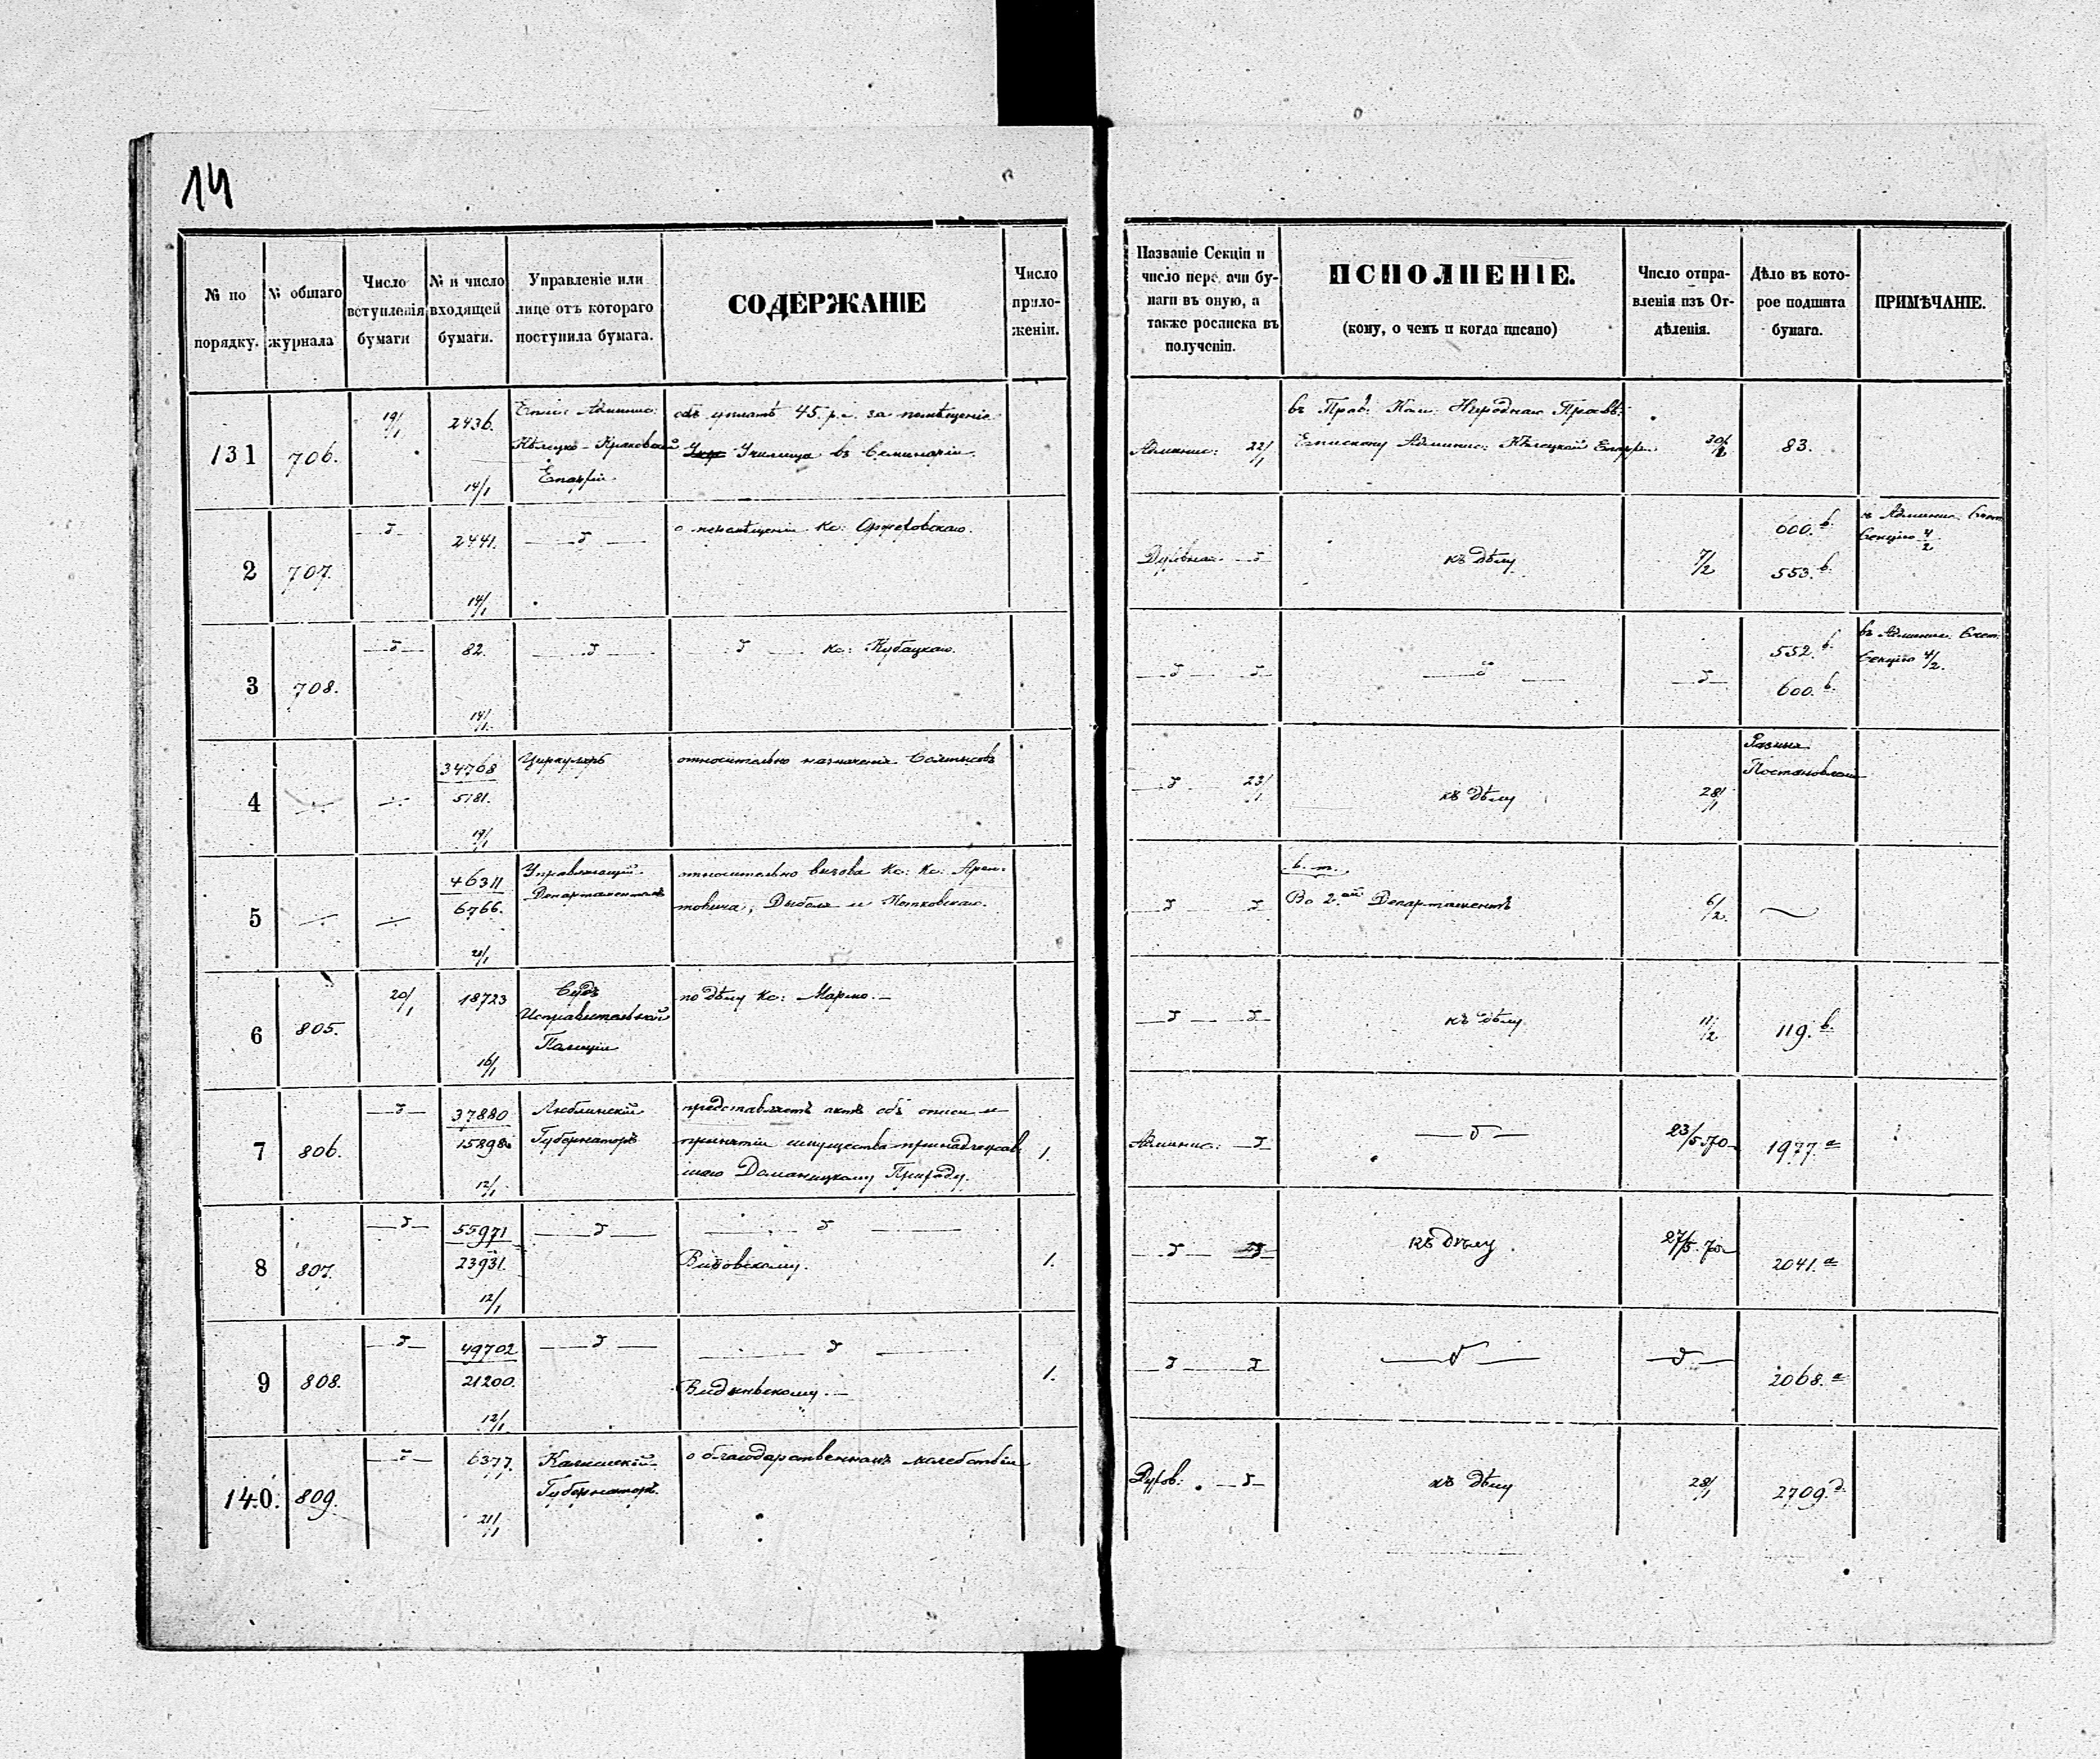 14
№ по порядку.
№ общаго журнала
Число вступленія бумаги
№ и число входящей бумаги.
Управленіе или лице отъ котораго поступила бумага.
СОДЕРЖАНІЕ
Число приложеніи.
Названіе Секціи и число передачи бумаги въ оную, а также росписка въ полученіи.
ИСПОЛНЕНІЕ.
(кому, о чемъ и когда писано)
Число отправленія изъ Отдѣленія.
Дѣло въ которое подшита бумага.
ПРИМѢЧАНІЕ.
131 706. 19/1 2436. 14/1
Епис: Админис:
Кѣлецко-Краковской
Епархіи
объ уплатѣ 45 р. с. за помѣщеніе
Училища въ Семинаріи.
Админис: 22/1
въ Прав: Ком: Народнаго Просв:
Епископу Админис: Кѣлецкой Епархіи
83.
2 707. 2441. 14/1
о перемѣщеніи Кс:
Духовная
къ дѣлу
7/2
600. в.
553. в.
Секцію 4/2
3 708. 82. 14/1
Кс: Кубацкаго.
552. в.
600. в.
въ Админис. Счет.
Секцію 4/2.
4 34768
5181.
19/1
Циркуляръ
относительно назначенія
23/1
къ дѣлу
28/1
Постановленія
5 46311
6766.
21/1
Управляющій
Департаментомъ
относительно вызова Кс: Кс:
товича, Дыбаля и
в. т.
Во 2.ой Департаментъ
6/2
6 805. 20/1 18723 16/1
Судъ
Исправительной
Полиціи
по дѣлу Кс: Марко. –
къ дѣлу
11/2
119. в.
7 806. 37880
15898
12/1
Люблинскій
Губернаторъ
представляетъ актъ объ описи и
принятіи имущества принадлежав
шаго Доманицкому Приходу.
1.
Админис:
23/5 70
1977. а
8 807. 55971
23931.
12/1
1.
къ дѣлу.
27/5. 70
2041. а
9 808. 49702
21200.
12/1
1.
2068. а
140. 809. 6377. 21/1
Калишскій
Губернаторъ.
о благодарственномъ молебствіи
Духов.
къ дѣлу
28/1
2709. д.